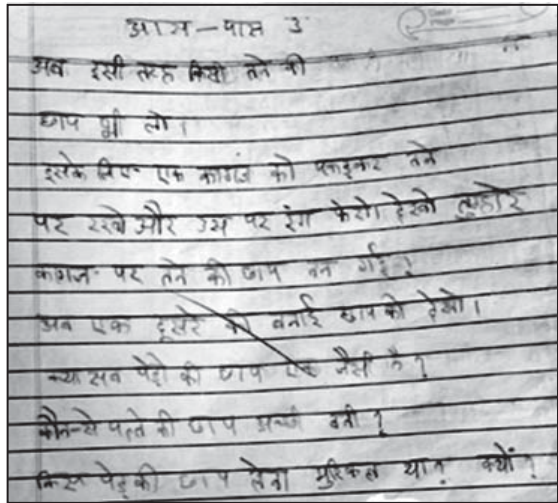 आस-पास 3
अब इसी तरह किसी तने की
छाप भी लो।
इसके लिए एक कागज को पकड़कर तने
पर रखो और उस पर रंग फेरो। देखो तुम्हारे
कागज पर तने की छाप बन गई?
अब एक दूसरे की बनाई छाप को देखो।
क्या सब पेड़ो की छाप एक जैसी है?
कौन-से पत्ते की छाप अच्छी बनी?
किस पेड़ की छाप लेना मुश्किल था? क्यों?